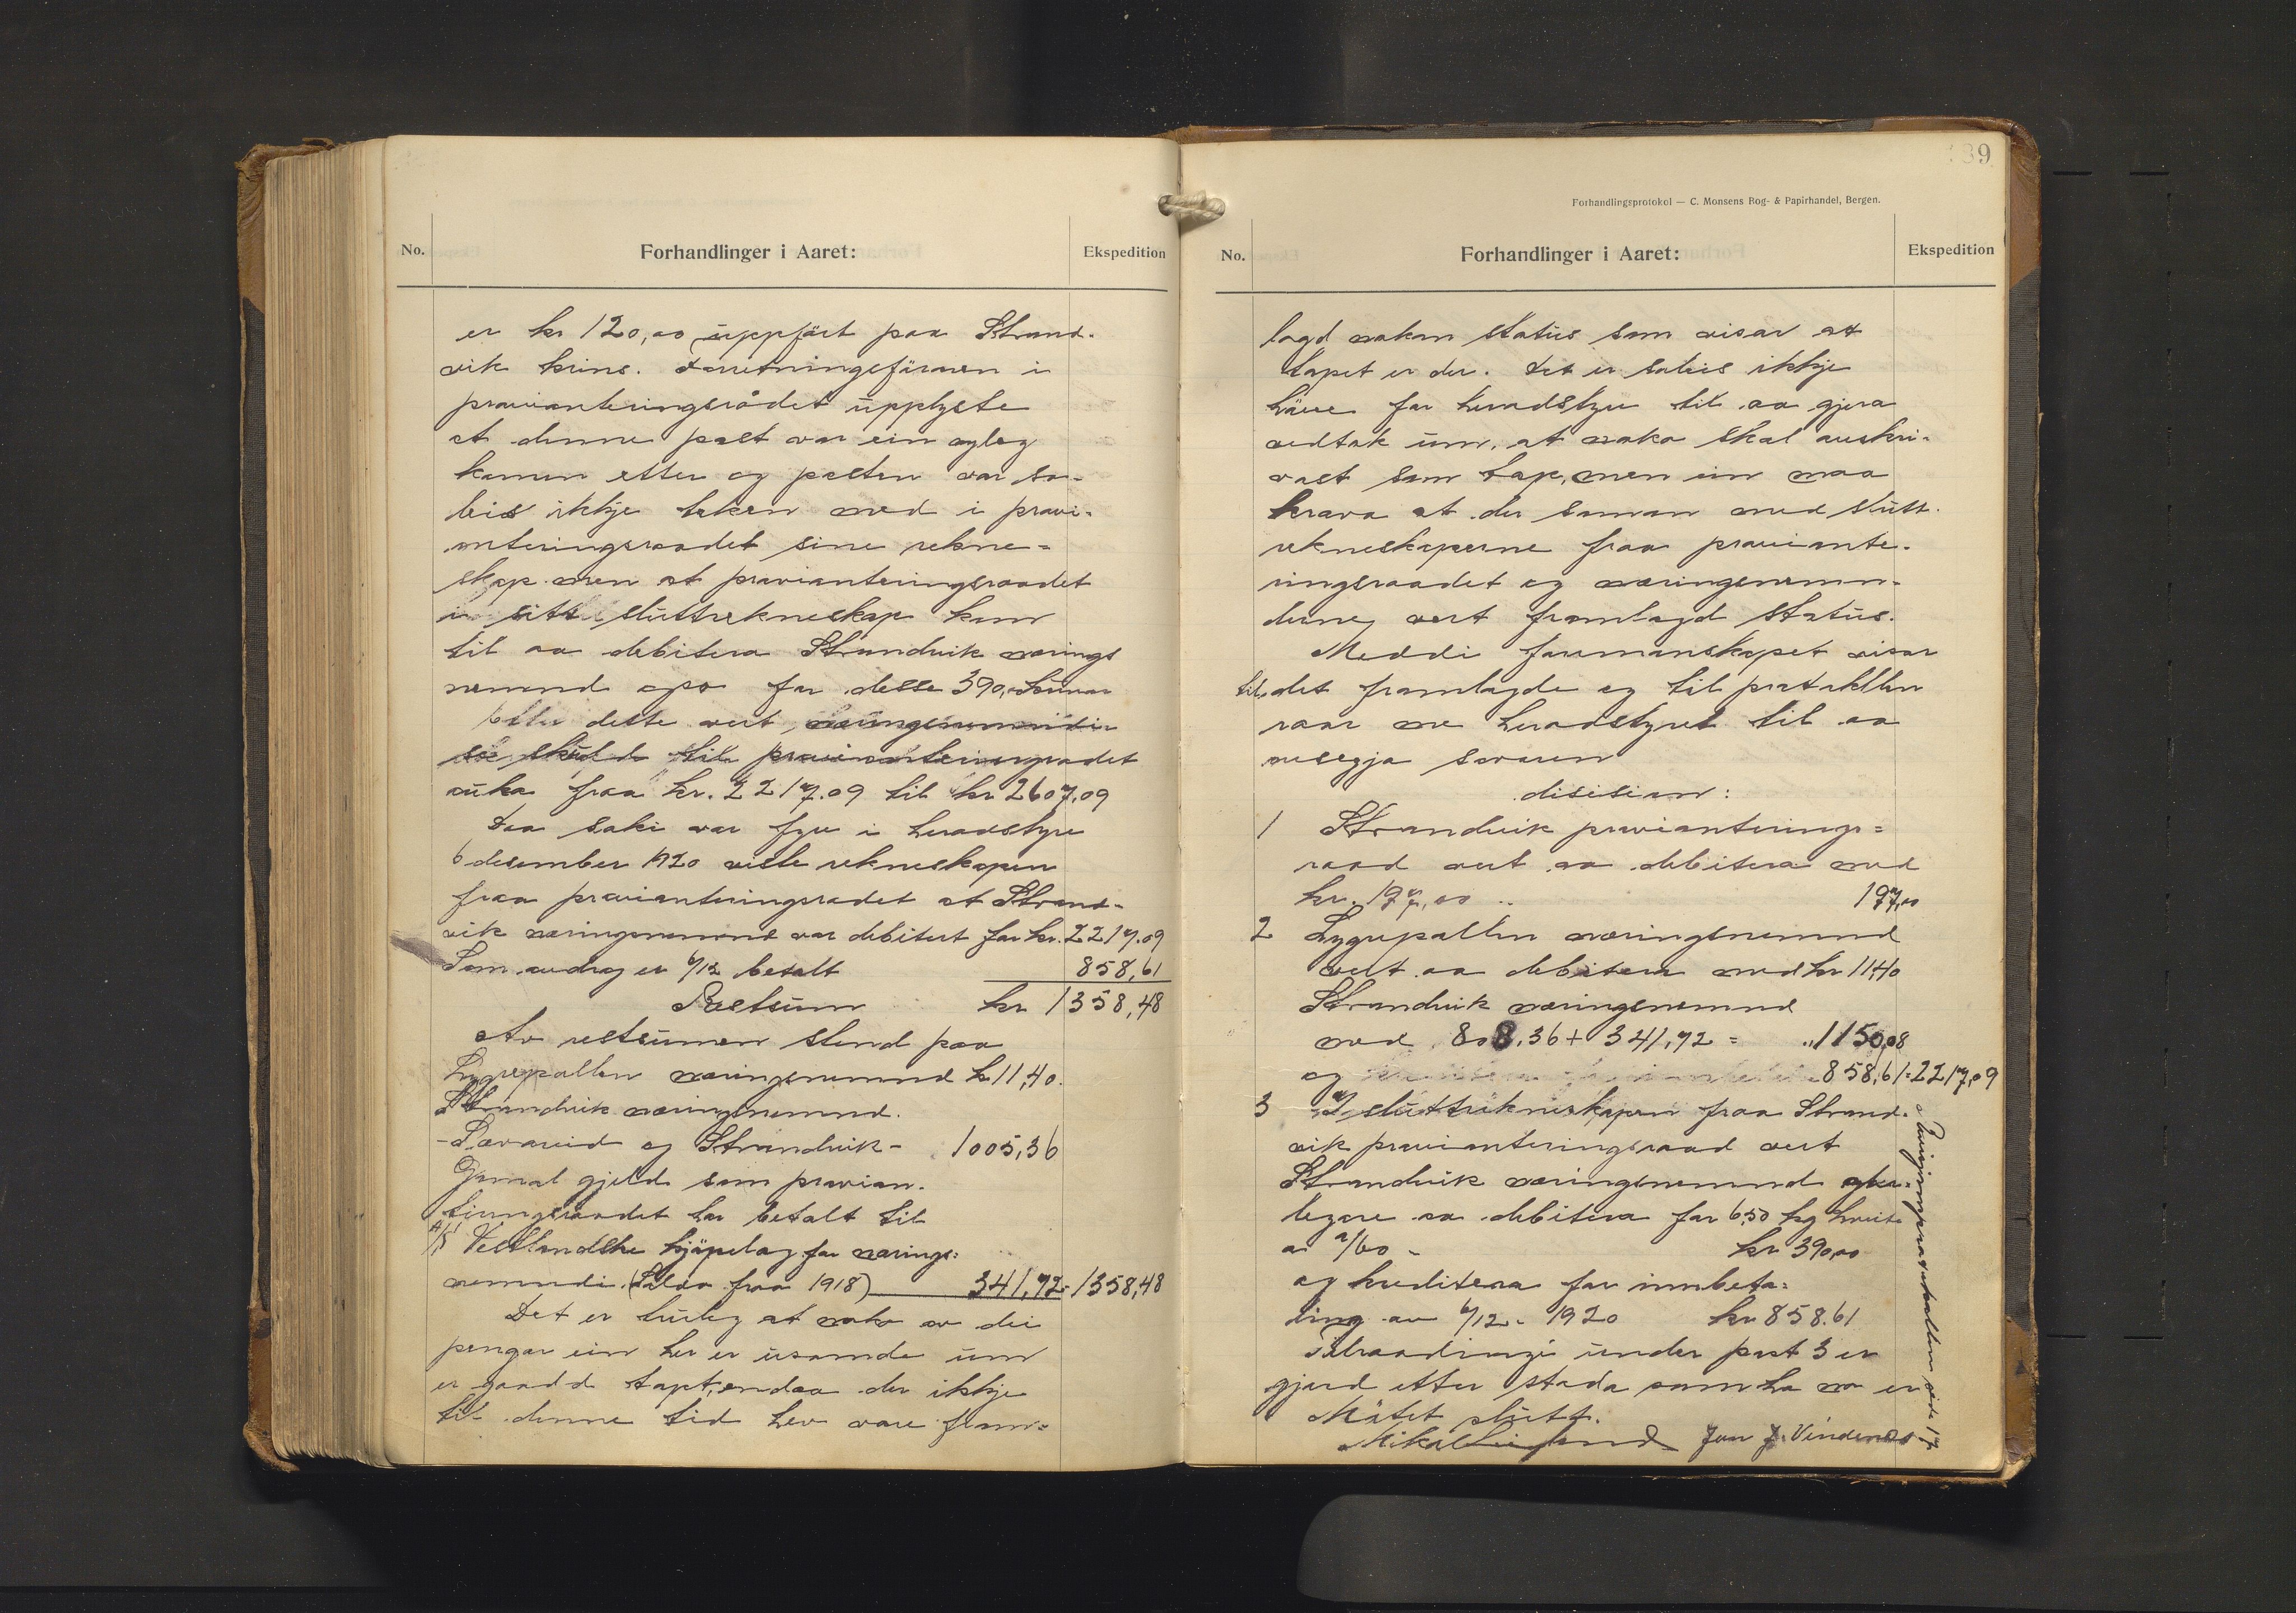 No.
Forhandlinger i Aaret:
Ekspedition
er kr 120,00 uppfört paa Strand-
vik krins. Forretningsföraren i
provianteringsrådet upplyste
at denne post var ein
komen etter og posten var so-
leis ikkje teken med i provi-
anteringsraadet sine rekne-
skap men at provianteringsraadet
i sitt sluttrekneskap kem
til aa debitera Strandvik nærings
nemnd ogso for desse 390,- kronor
Etter dette vert næringsnemndi
si skuld til provianteringsradet
auka fraa kr. 2217.09 til kr 2607,09
Daa saki var fyre i heradstyre
6 desember 1920 viste rekneskapen
fraa provianteringsradet at Strand-
vik næringsnemnd var debitert for kr. 2217.09
Som avdrag er 6/12 betalt 858,61
Restsum kr 1358,48
Av restsumen stend paa
Lygrepollen næringsnemnd kr 11,40.
Strandvik næringsnemnd.
- Sævareid og Strandvik - 1005,36
Gamal gjeld som provian-
teringsraadet har betalt til
A/S Vestlandske kjöpelag for nærings-
nemndi. (Saldo fraa 1918) 341,72 = 1358,48
Det er truleg at noko av dei
pengar ein her er usamde um
er gaadd tapt, endaa der ikkje
til denne tid hev vore fram-
139
Forhandlingsprotokol — C. Monsens Bog- & Papirhandel, Bergen.
No.
Forhandlinger i Aaret:
Ekspedition
lagd nokon status som visar at
tapet er der. Det er soleis ikkje
høve for heradstyre til aa gjera
vedtak um, at noko skal avskri-
vast som tap, men ein maa
krava at der saman med slutt-
rekneskaperne fraa proviante-
ringsraadet og næringsnemn-
derne vert framlagd status.
Meddi formanskapet visar
til det framlagde og til protokollen
raar me heradstyret til aa
avsegja soraren
disisian:
1 Strandvik provianterings-
raad vert aa debitera med
kr. 197,00 .. 197,00
2 Lygrepollen næringsnemnd
vert aa debitera med kr 11,40
Strandvik næringsnemnd
med 808.36 + 341,72 = „ 1150,08
og 858,61 = 2217,09
3 I sluttrekneskapen fraa Strand-
vik provianteringsraad vert
Strandvik næringsnemnd ytter-
legare aa debitera for 650 kg kveite
a /60 - kr 390,00
og kreditera for innbeta-
ling av 6/12 - 1920 kr 858.61
Tilraadingi under post 3 er
gjord etter stoda som ho no er
Mötet slutt.
Mikal Jon J. Vindenes
Revisjonsprotokollen side 17